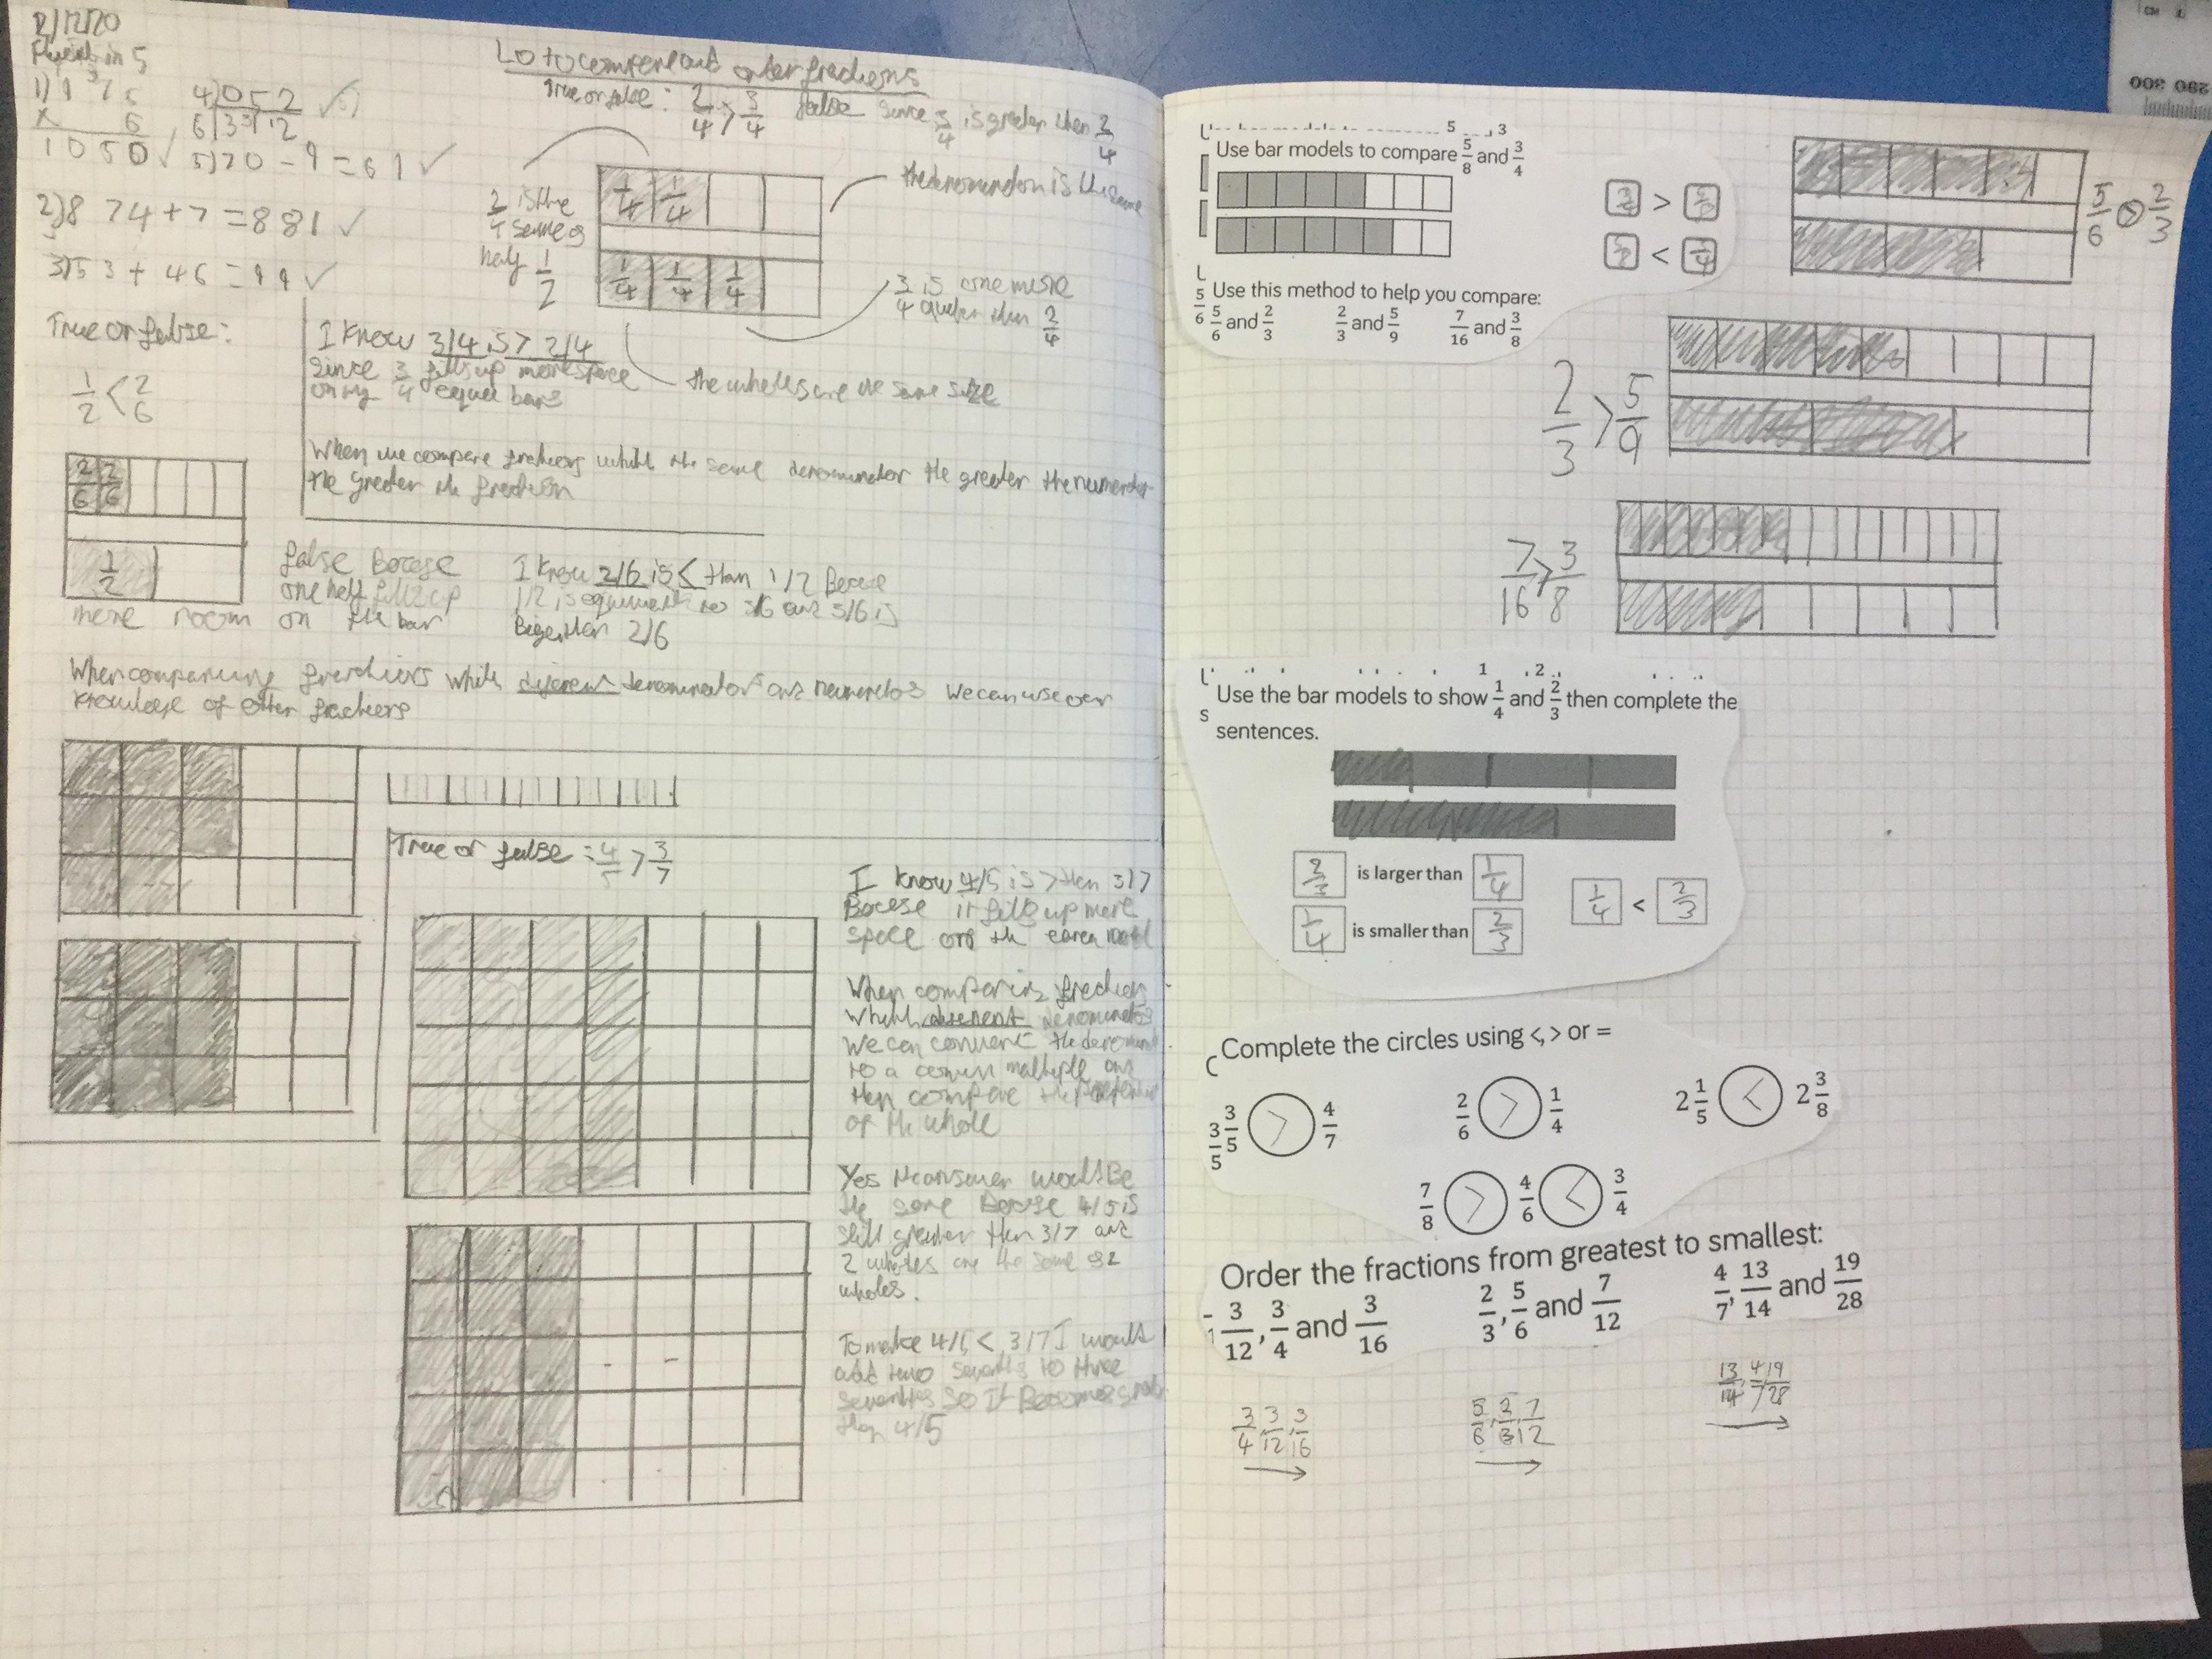 2/12/20
in 5
1) 1 7 5
x 6
1050
4) 052
6 3 31 12
5) 70 - 9 = 61
2) 8 74 + 7 = 881
3) 53 + 46 = 99
LO to compere and order fractions
True or false: 2/4 > 3/4 false since 3/4 is greater then 2/4
2/4 is the
same as
half 1/2
1/4 1/4
1/4 1/4 1/4
the denomenator is the same
3/4 is one more
quater then 2/4
the wholes are the same size
I know 3/4 is > 2/4
since 3/4 fills up more space
on my equal bars
When we compare fractions whith the same denominator the greater the numerator
the greater the fraction
True or false:
1/2 < 2/6
2/6 2/6
1/2
false Becaese
one half fillz up
more room on the bar
I know 2/6 is < than 1/2 Becaese
1/2 is equivalent to 3/6 and 3/6 is
Biger then 2/6
When comparing fractions whith diferent denomenators and numerators we can use our
knowledge of other fractions
True or false = 4/5 > 3/7
I know 4/5 is > then 3/7
Becaese it fills up more
space on the earea model
When comparing fractions
whith diferent denomenators
we can convert the denomenator
to a comun multiple and
then compare the
of the whole
Yes the answer would Be
the same Becaese 4/5 is
still greater then 3/7 and
2 wholes are the same as 2
wholes.
To make 4/5 < 3/7 I would
add two sevenths to three
sevenths so it Becomes
then 4/5
Use bar models to compare 5/8 and 3/4
3/4 > 5/8
5/8 < 3/4
Use this method to help you compare:
5/6 and 2/3 2/3 and 5/9 7/16 and 3/8
5/6 > 2/3
2/3 > 5/9
7/16 > 3/8
Use the bar models to show 1/4 and 2/3 then complete the
sentences.
2/3 is larger than 1/4
1/4 is smaller than 2/3
1/4 < 2/3
Complete the circles using <, > or =
3/5 > 4/7 2/6 > 1/4 2 1/5 < 2 3/8
7/8 > 4/6 < 3/4
Order the fractions from greatest to smallest:
3/12, 3/4 and 3/16 2/3, 5/6 and 7/12 4/7, 13/14 and 19/28
3/4, 3/12, 3/16
5/6, 2/3, 7/12
13/14, 4/7, 19/28
CM
290 300